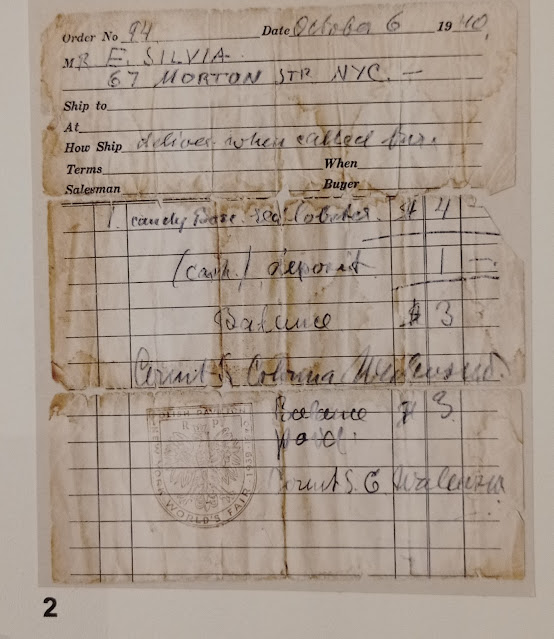 Order No 94 Date October 6 1940.
MR E. SILVIA.
67 MORTON STR NYC. —
Ship to
At
How Ship deliver when called for.
Terms When
Salesman Buyer
1. candy red lobster. $ 4 —
(cash) deposit 1 —
Balance $ 3
Balance $ 3.
paid.
NEW YORK WORLD'S FAIR
2